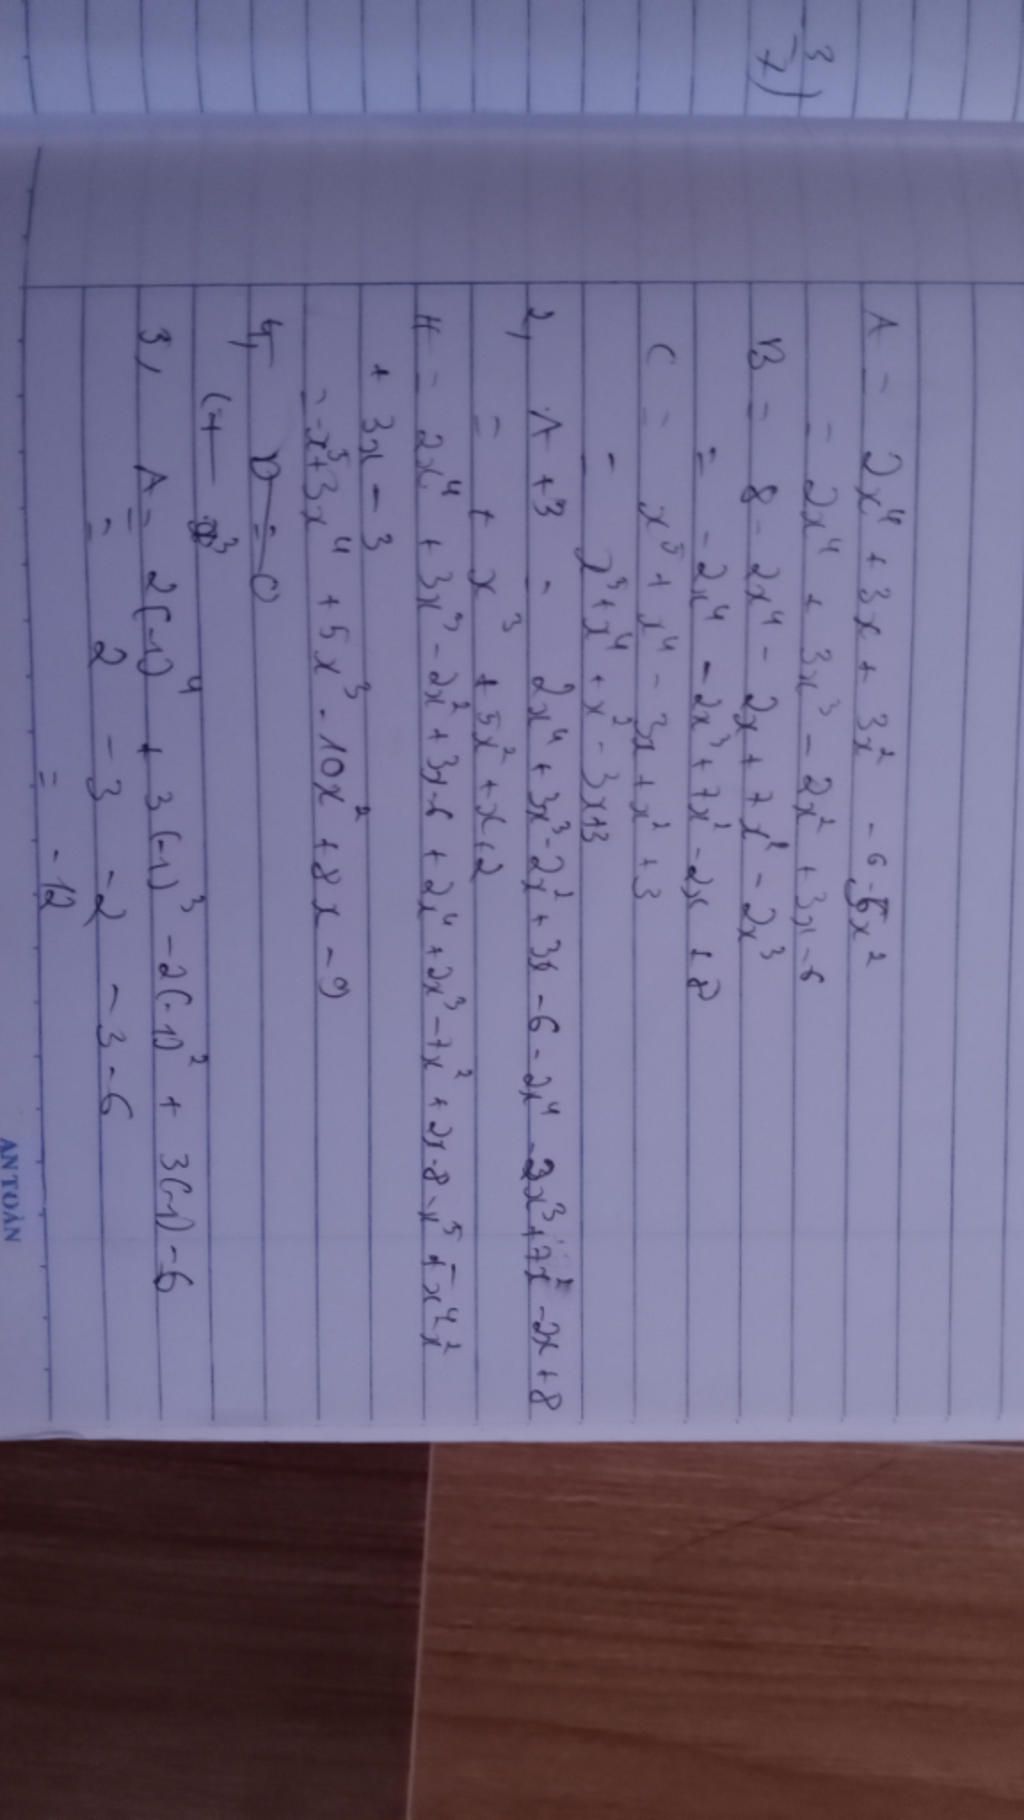 3
7)
A = 2x⁴ + 3x + 3x² - 6 - 5x²
= 2x⁴ + 3x³ - 2x² + 3x - 6
B = 8 - 2x⁴ - 2x + 7x² - 2x³
= - 2x⁴ - 2x³ + 7x² - 2x + 8
C = x⁵ + x⁴ - 3x + x² + 3
= x⁵ + x⁴ + x² - 3x+3
2, A + 3 = 2x⁴ + 3x³ - 2x² + 3x - 6 - 2x⁴ - 2x³ + 7x² - 2x + 8
= + x³ + 5x² + x + 2
H = 2x⁴ + 3x³ - 2x² + 3x - 6 + 2x⁴ + 2x³ - 7x² + 2x - 8 - x⁵ - x⁴ x²
+ 3x - 3
= -x⁵ + 3x⁴ + 5x³ - 10x² + 8x - 9
4,
3, A = 2(-1)⁴ + 3(-1)³ - 2(-1)² + 3(-1) - 6
= 2 - 3 - 2 - 3 - 6
= - 12
AN TOÀN